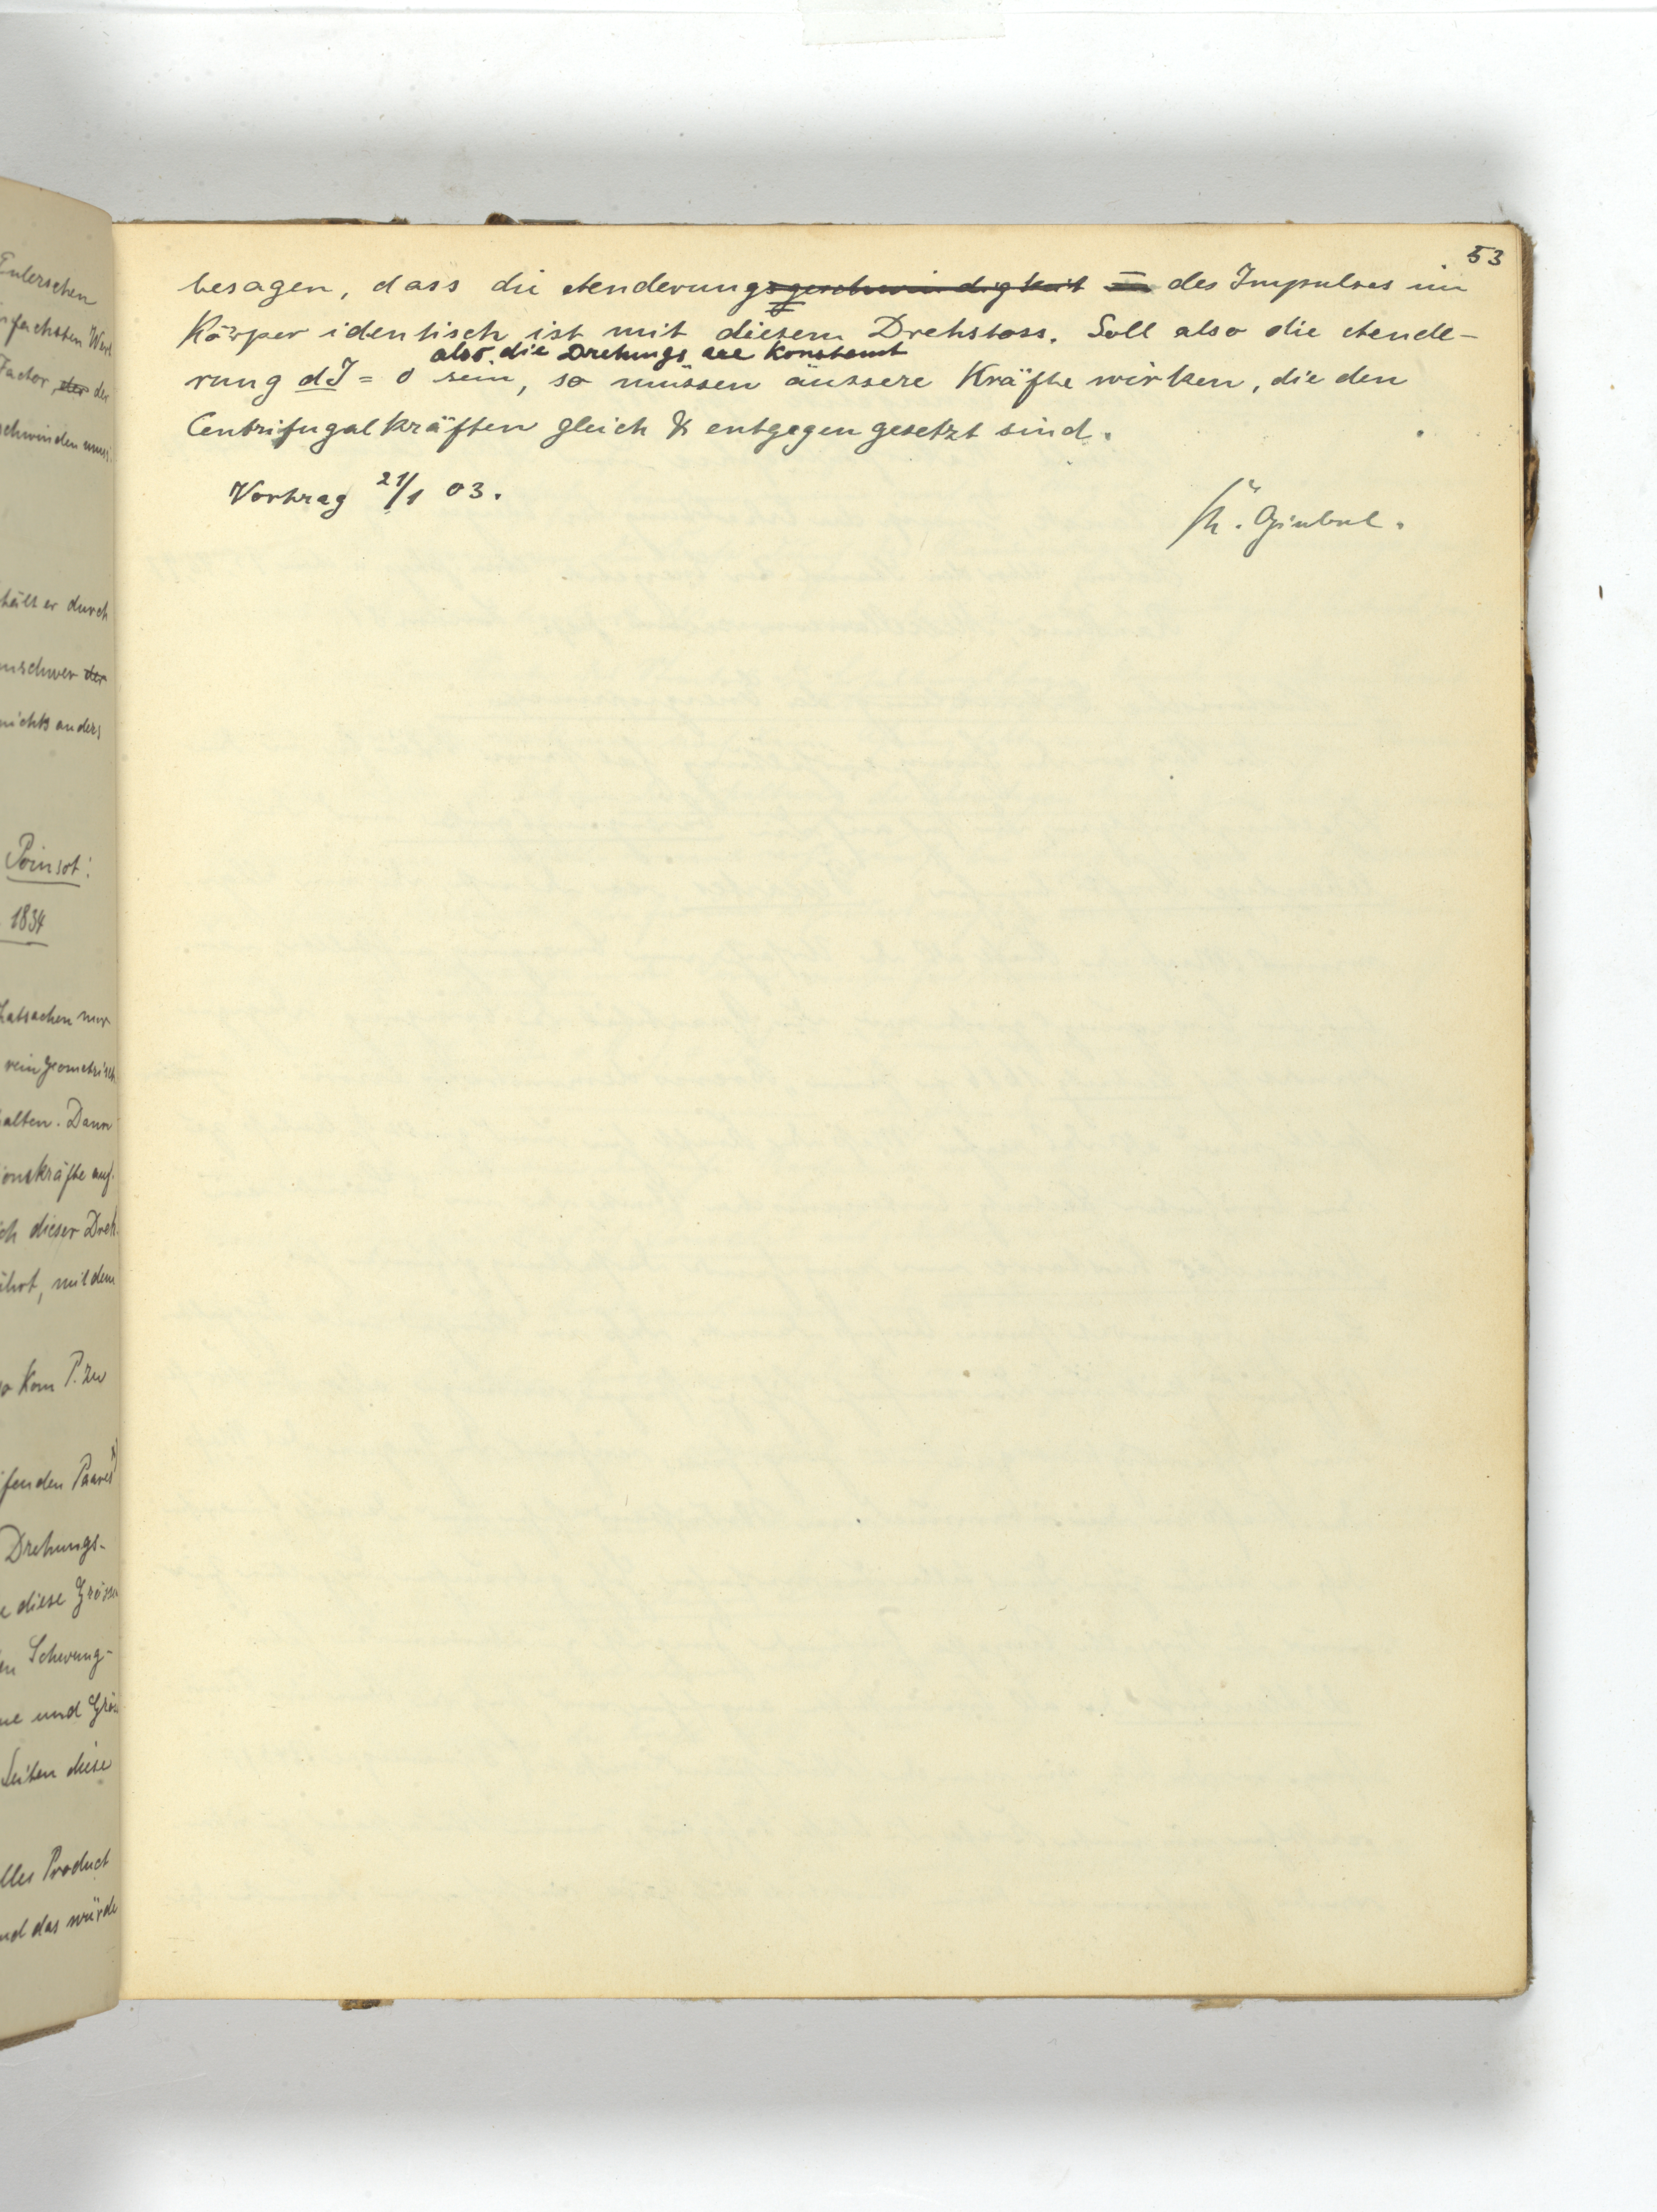 Eulerschen
fachsten Wert
Factor, der der
schwinden muss.
hält er durch
unschwer der
nichts anders
Poinsot:
1834
Thatsachen nur
rein geometrisch
halten. Dann
ionskräfte auf.
ch dieser Dreh
ührt, mit dem
so kam P. zu
ifenden Paares
Drehungs-
e diese Grösse
en Schwung-
ne und Grös
Seiten diese
lles Product
nd das würde
53
besagen, dass die Aenderungsgeschwindigkeit des Impulses im
Körper identisch ist mit diesem Drehstoss. Soll also die Aende-
also die Drehungsaxe konstant
rung dJ = 0 sein, so müssen äussere Kräfte wirken, die den
Centrifugalkräften gleich & entgegengesetzt sind.
Vortrag 21/1 03.